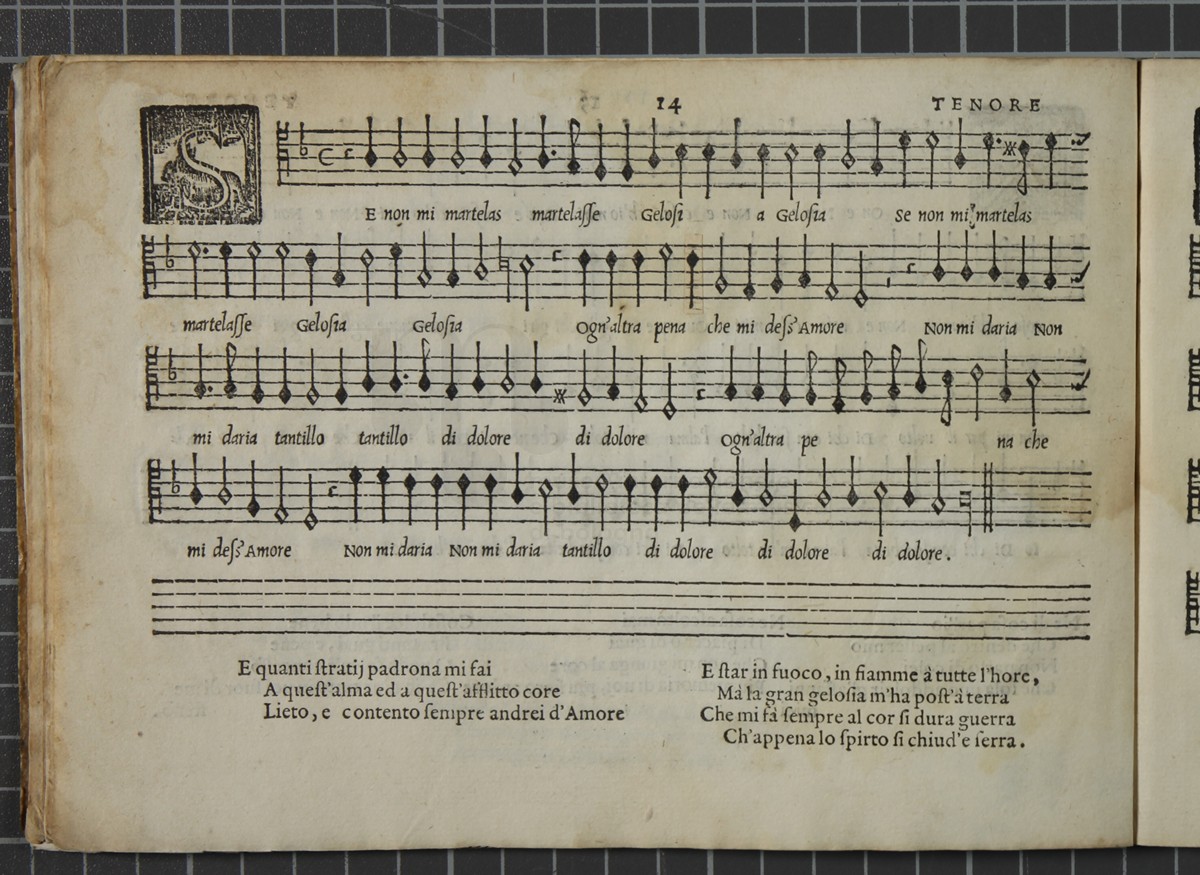 14
TENORE
S
E non mi martelas martelaſſe Geloſi a Geloſia Se non mi martelas
martelaſſe Geloſia Geloſia Ogn'altra pena che mi deſs'Amore Non mi daria Non
mi daria tantillo tantillo di dolore di dolore Ogn'altra pe na che
mi deſs'Amore Non mi daria Non mi daria tantillo di dolore di dolore di dolore.
E quanti ſtratij padrona mi fai
A queſt'alma ed a queſt'afflitto core
Lieto, e contento ſempre andrei d'Amore
E ſtar in fuoco, in fiamme à tutte l'hore,
Mà la gran geloſia m'ha poſt'à terra
Che mi fà ſempre al cor ſi dura guerra
Ch'appena lo ſpirto ſi chiud'e ſerra.